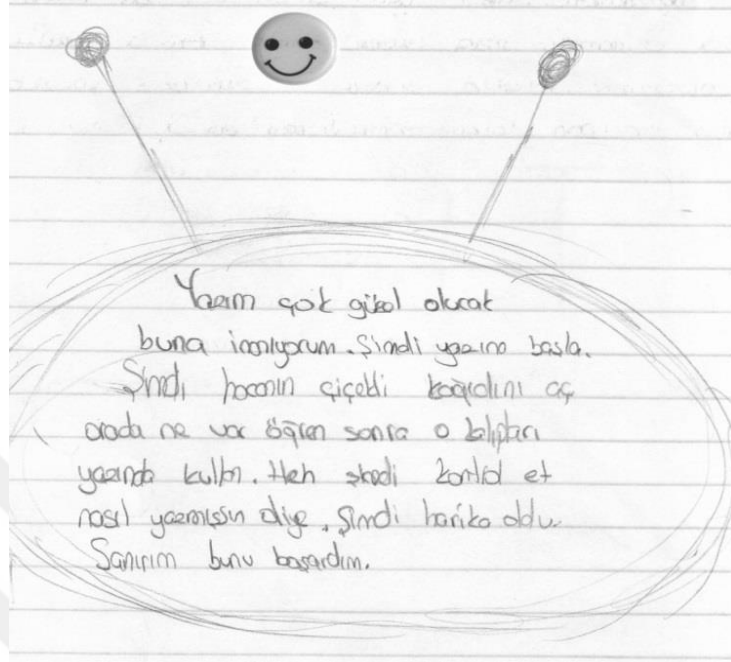 Yazım çok güzel olucak
buna inanıyorum. Şimdi yazına başla.
Şimdi hocanın çiçekli kağıdını aç
orada ne var öğren sonra o kalıpları
yazında kullan. Heh şimdi kontrol et
nasıl yazmışsın diye. Şimdi harika oldu.
Sanırım bunu başardım.